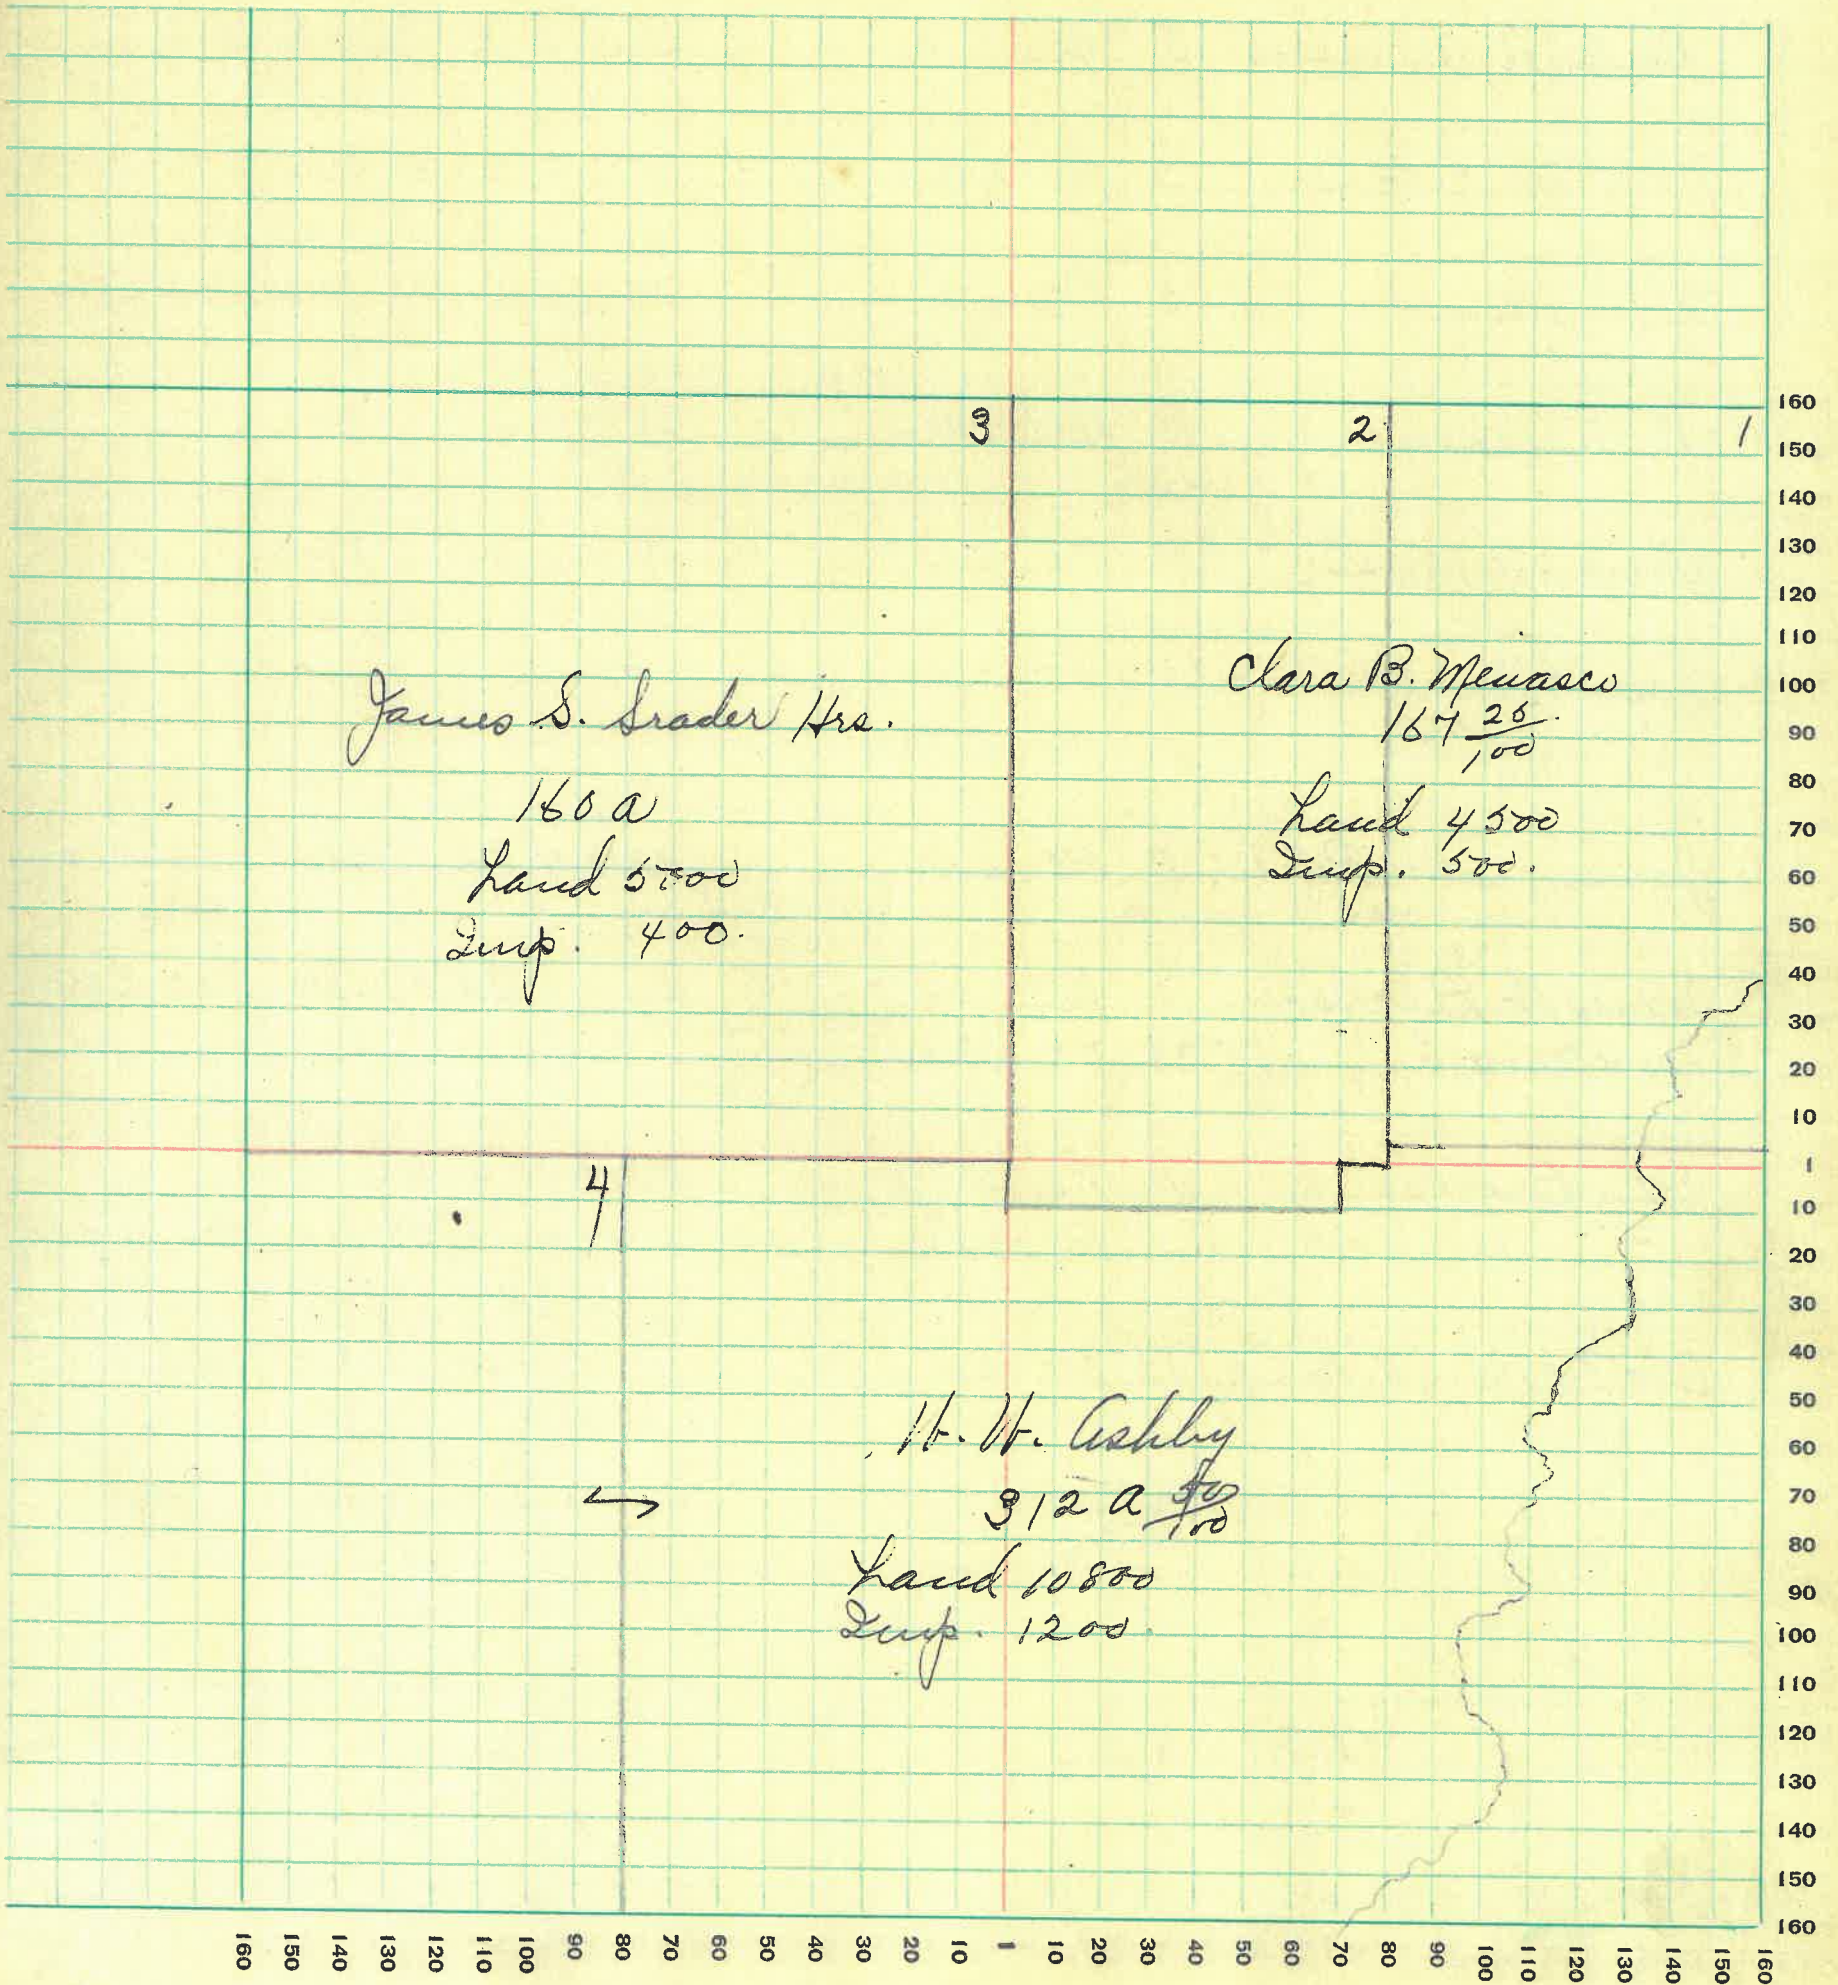 3
2
1
James S. Srader Hrs.
160 a
Land 5000
Imp. 400.
Clara B. Menasco
167 26/100
Land 4500
Imp. 500.
4
W. W. Ashby
312 a
Land 10800
Imp. 1200.
160
150
140
130
120
110
100
90
80
70
60
50
40
30
20
10
1
10
20
30
40
50
60
70
80
90
100
110
120
130
140
150
160
160 150 140 130 120 110 100 90 80 70 60 50 40 30 20 10 1 10 20 30 40 50 60 70 80 90 100 110 120 130 140 150 160